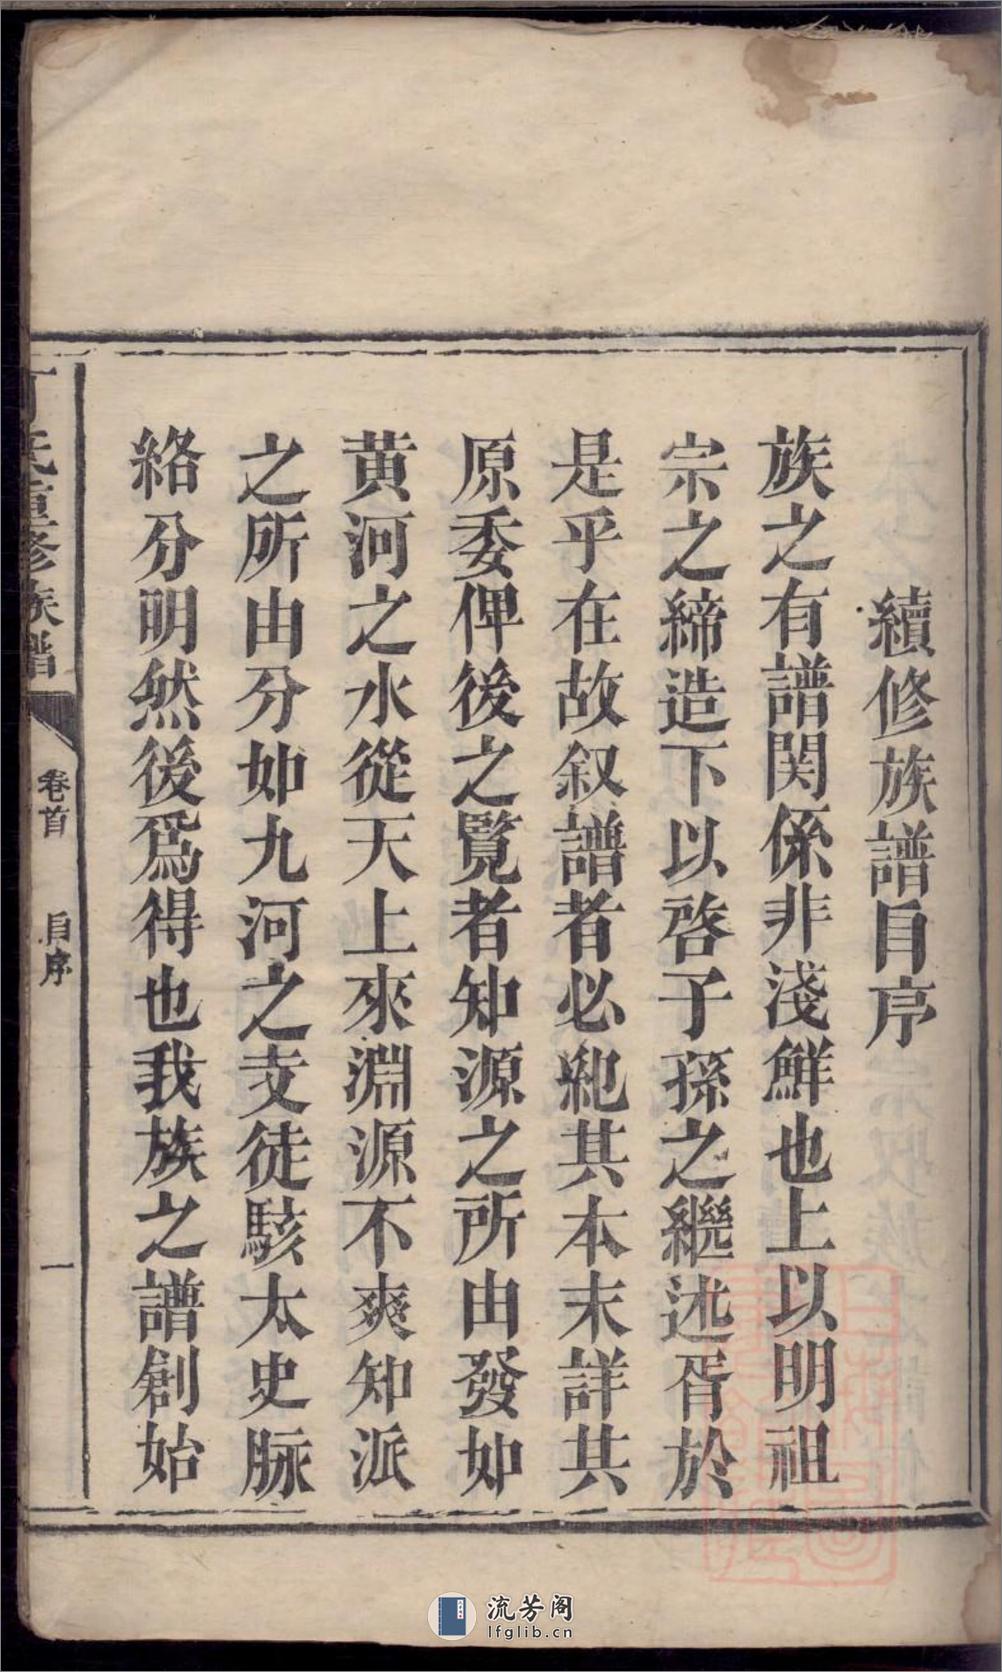 續修族譜自序
族之有譜関係非淺鮮也上以明祖
宗之締造下以啓子孫之繼述胥於
是乎在故叙譜者必紀其本末詳其
原委俾後之覽者知源之所由發如
黄河之水從天上來淵源不爽知派
之所由分如九河之支徒駭太史脉
絡分明然後爲得也我族之譜創始
丁氏重修族譜
卷首
自序
一
流芳阁
lfglib.cn